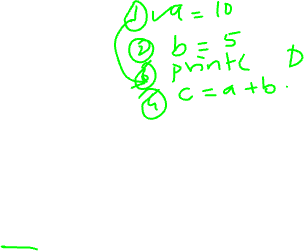 ① a = 10
② b = 5
③ print(    )
④ c = a + b.